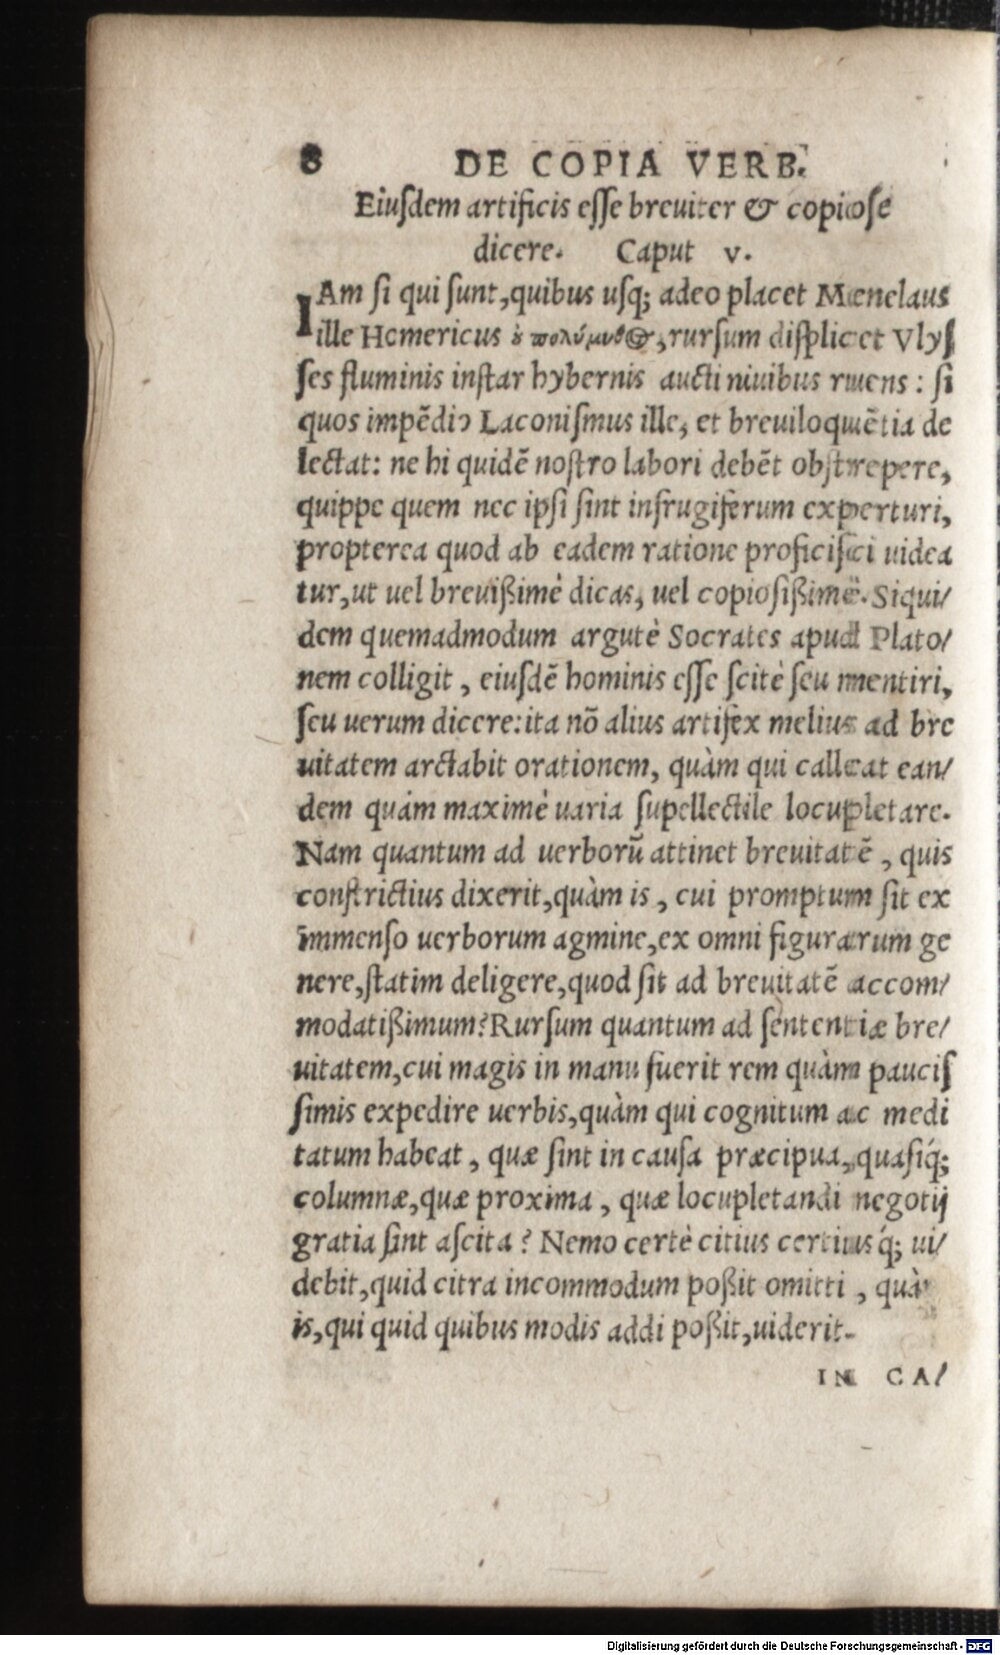 8 DE COPIA VERB.
Eiuſdem artificis eſſe breuiter & copioſe
dicere. Caput v.
IAm ſi qui ſunt, quibus uſq; adeo placet Mænelaus
ille Homericus ὁ πολύμυθος, rurſum diſplicet Vlyſ
ſes fluminis inſtar hybernis aucti niuibus ruens: ſi
quos impēdiɔ Laconiſmus ille, et breuiloquētia de
lectat: ne hi quidē noſtro labori debēt obſtrepere,
quippe quem nec ipſi ſint infrugiferum experturi,
propterea quod ab eadem ratione proficiſci uidea
tur, ut uel breuißimè dicas, uel copioſißimè. Siqui/
dem quemadmodum argutè Socrates apud Plato/
nem colligit, eiuſdē hominis eſſe ſcitè ſeu mentiri,
ſeu uerum dicere: ita nō alius artifex melius ad bre
uitatem arctabit orationem, quàm qui calleat ean/
dem quàm maximè uaria ſupellectile locupletare.
Nam quantum ad uerborū attinet breuitatē, quis
conſtrictius dixerit, quàm is, cui promptum ſit ex
immenſo uerborum agmine, ex omni figurarum ge
nere, ſtatim deligere, quod ſit ad breuitatē accom/
modatißimum? Rurſum quantum ad ſententiæ bre/
uitatem, cui magis in manu fuerit rem quàm pauciſ
ſimis expedire uerbis, quàm qui cognitum ac medi
tatum habeat, quæ ſint in cauſa præcipua, quaſiq́;
columnæ, quæ proxima, quæ locupletandi negotij
gratia ſint aſcita? Nemo certè citius certiusq́; ui/
debit, quid citra incommodum poßit omitti, quà
is, qui quid quibus modis addi poßit, uiderit.
IN CA/
Digitalisierung gefördert durch die Deutsche Forschungsgemeinschaft - DFG